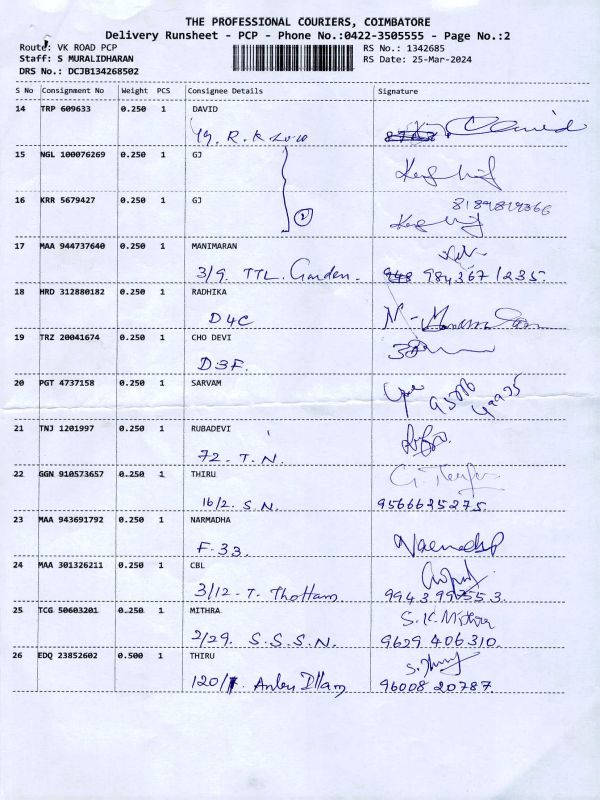 THE PROFESSIONAL COURIERS, COIMBATORE
Delivery Runsheet - PCP - Phone No.:0422-3505555 - Page No.:2
Route: VK ROAD PCP
RS No.: 1342685
Staff: S MURALIDHARAN
RS Date: 25-Mar-2024
DRS No.: DCJB134268502
S No Consignment No Weight PCS Consignee Details Signature
14 TRP 609633 0.250 1 DAVID
15 NGL 100076269 0.250 1 GJ
16 KRR 5679427 0.250 1 GJ
2
8189819366
17 MAA 944737640 0.250 1 MANIMARAN
3/9. TTL. Garden. 984367 1235.
18 HRD 312880182 0.250 1 RADHIKA
D4C
19 TRZ 20041674 0.250 1 CHO DEVI
D3F.
20 PGT 4737158 0.250 1 SARVAM
21 TNJ 1201997 0.250 1 RUBADEVI
72. T. N.
22 GGN 910573657 0.250 1 THIRU
16/2. S.N. 9566625275.
23 MAA 943691792 0.250 1 NARMADHA
F-33.
24 MAA 301326211 0.250 1 CBL
3/12- T. Thottam.
25 TCG 50603201 0.250 1 MITHRA
S.K. Mithra
2/29. S.S.S.N. 9629 406310.
26 EDQ 23852602 0.500 1 THIRU
Anbu Illam 96008 20787.